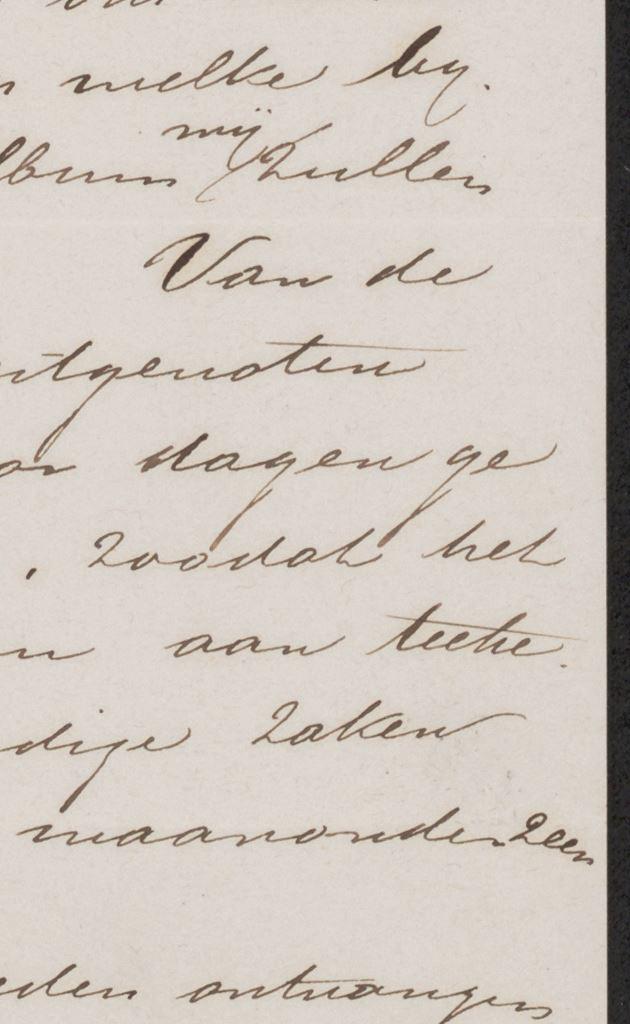 welke by.
lbum mij zullen
Van de
tgenoten
dagen ge
, zoodat het
aan teeke.
dige zaken
waaronder zeer
eden ontvangen